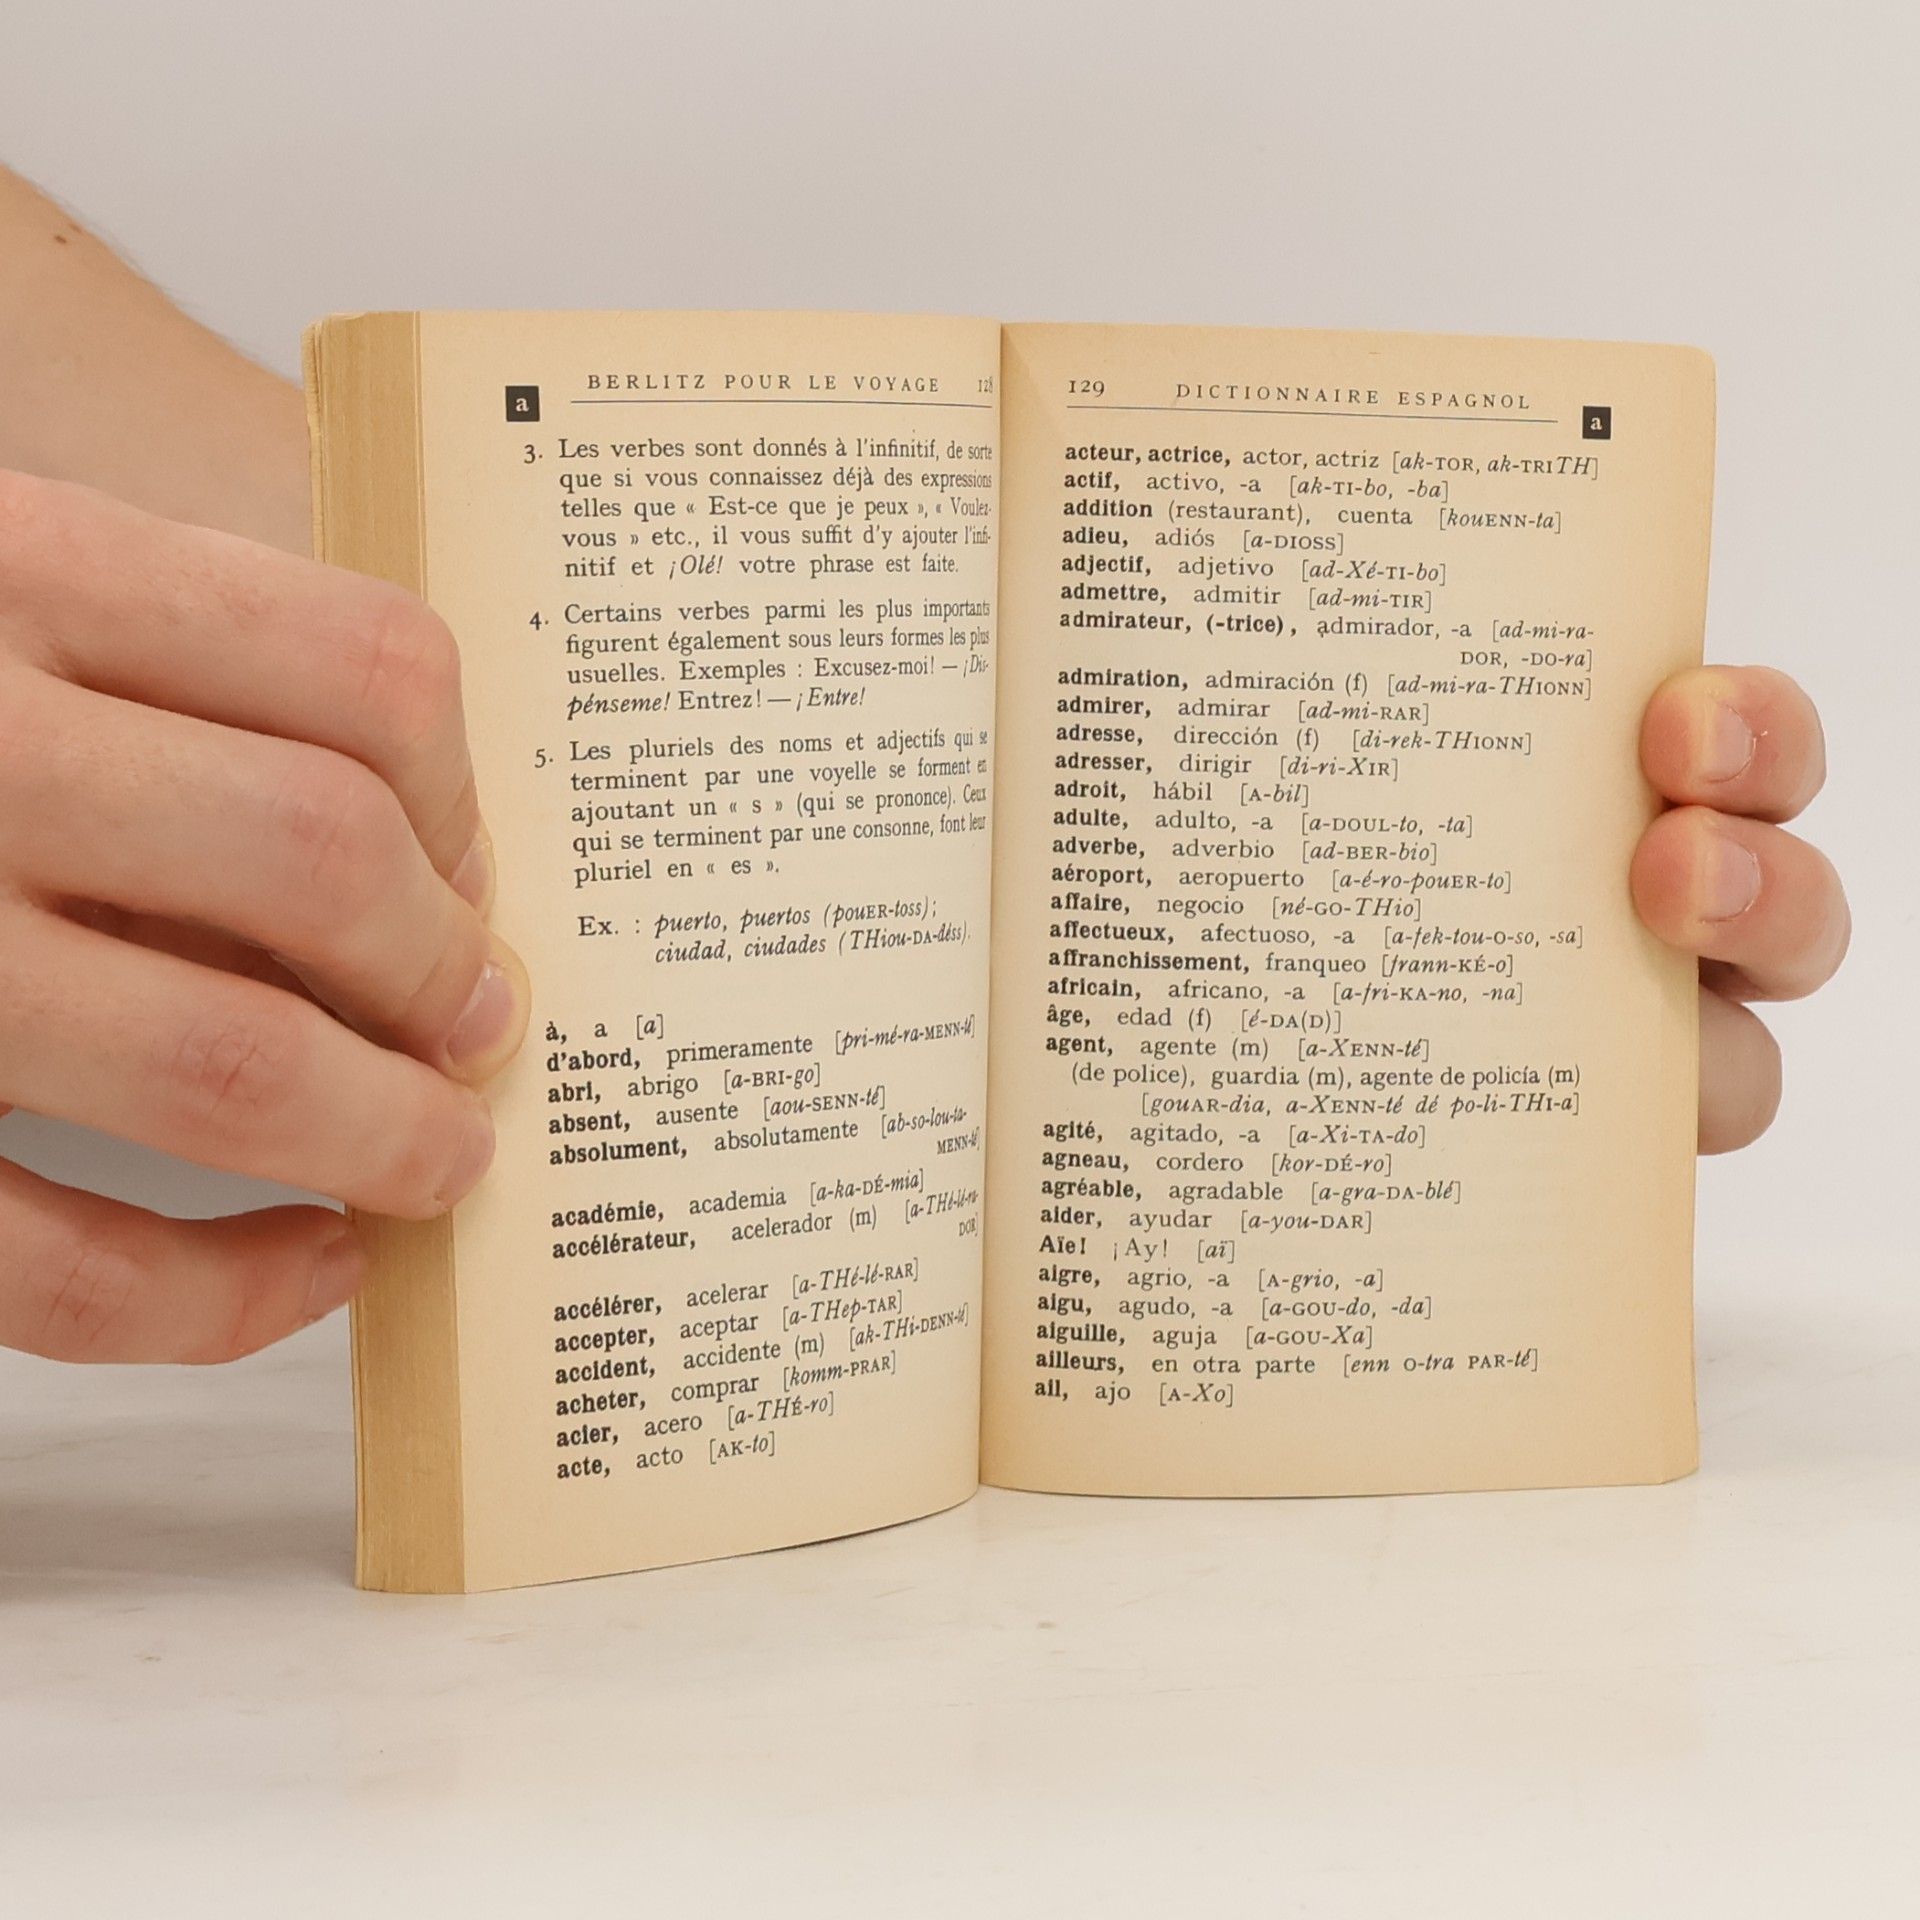 a
BERLITZ POUR LE VOYAGE 128
3. Les verbes sont donnés à l'infinitif, de sorte
que si vous connaissez déjà des expressions
telles que « Est-ce que je peux », « Voulez-
vous » etc., il vous suffit d'y ajouter l'infi-
nitif et ¡Olé! votre phrase est faite.
4. Certains verbes parmi les plus importants
figurent également sous leurs formes les plus
usuelles. Exemples : Excusez-moi! — ¡Dis-
pénseme! Entrez! — ¡Entre!
5. Les pluriels des noms et adjectifs qui se
terminent par une voyelle se forment en
ajoutant un « s » (qui se prononce). Ceux
qui se terminent par une consonne, font leur
pluriel en « es ».
Ex. : puerto, puertos (pouER-toss);
ciudad, ciudades (THiou-DA-déss).
à, a [a]
d'abord, primeramente [pri-mé-ra-MENN-té]
abri, abrigo [a-BRI-go]
absent, ausente [aou-SENN-té]
absolument, absolutamente [ab-so-lou-ta-
MENN-té]
académie, academia [a-ka-DÉ-mia]
accélérateur, acelerador (m) [a-THé-lé-ra-
DOR]
accélérer, acelerar [a-THé-lé-RAR]
accepter, aceptar [a-THep-TAR]
accident, accidente (m) [ak-THi-DENN-té]
acheter, comprar [komm-PRAR]
acier, acero [a-THÉ-ro]
acte, acto [AK-to]
129 DICTIONNAIRE ESPAGNOL
a
acteur, actrice, actor, actriz [ak-TOR, ak-TRITH]
actif, activo, -a [ak-TI-bo, -ba]
addition (restaurant), cuenta [kouENN-ta]
adieu, adiós [a-DIOSS]
adjectif, adjetivo [ad-Xé-TI-bo]
admettre, admitir [ad-mi-TIR]
admirateur, (-trice), admirador, -a [ad-mi-ra-
DOR, -DO-ra]
admiration, admiración (f) [ad-mi-ra-THIONN]
admirer, admirar [ad-mi-RAR]
adresse, dirección (f) [di-rek-THIONN]
adresser, dirigir [di-ri-XIR]
adroit, hábil [A-bil]
adulte, adulto, -a [a-DOUL-to, -ta]
adverbe, adverbio [ad-BER-bio]
aéroport, aeropuerto [a-é-ro-pouER-to]
affaire, negocio [né-GO-THio]
affectueux, afectuoso, -a [a-fek-tou-O-so, -sa]
affranchissement, franqueo [frann-KÉ-o]
africain, africano, -a [a-fri-KA-no, -na]
âge, edad (f) [é-DA(D)]
agent, agente (m) [a-XENN-té]
(de police), guardia (m), agente de policía (m)
[gouAR-dia, a-XENN-té dé po-li-THI-a]
agité, agitado, -a [a-Xi-TA-do]
agneau, cordero [kor-DÉ-ro]
agréable, agradable [a-gra-DA-blé]
aider, ayudar [a-you-DAR]
Aïe! ¡Ay! [aï]
aigre, agrio, -a [A-grio, -a]
aigu, agudo, -a [a-GOU-do, -da]
aiguille, aguja [a-GOU-Xa]
ailleurs, en otra parte [enn O-tra PAR-té]
ail, ajo [A-Xo]